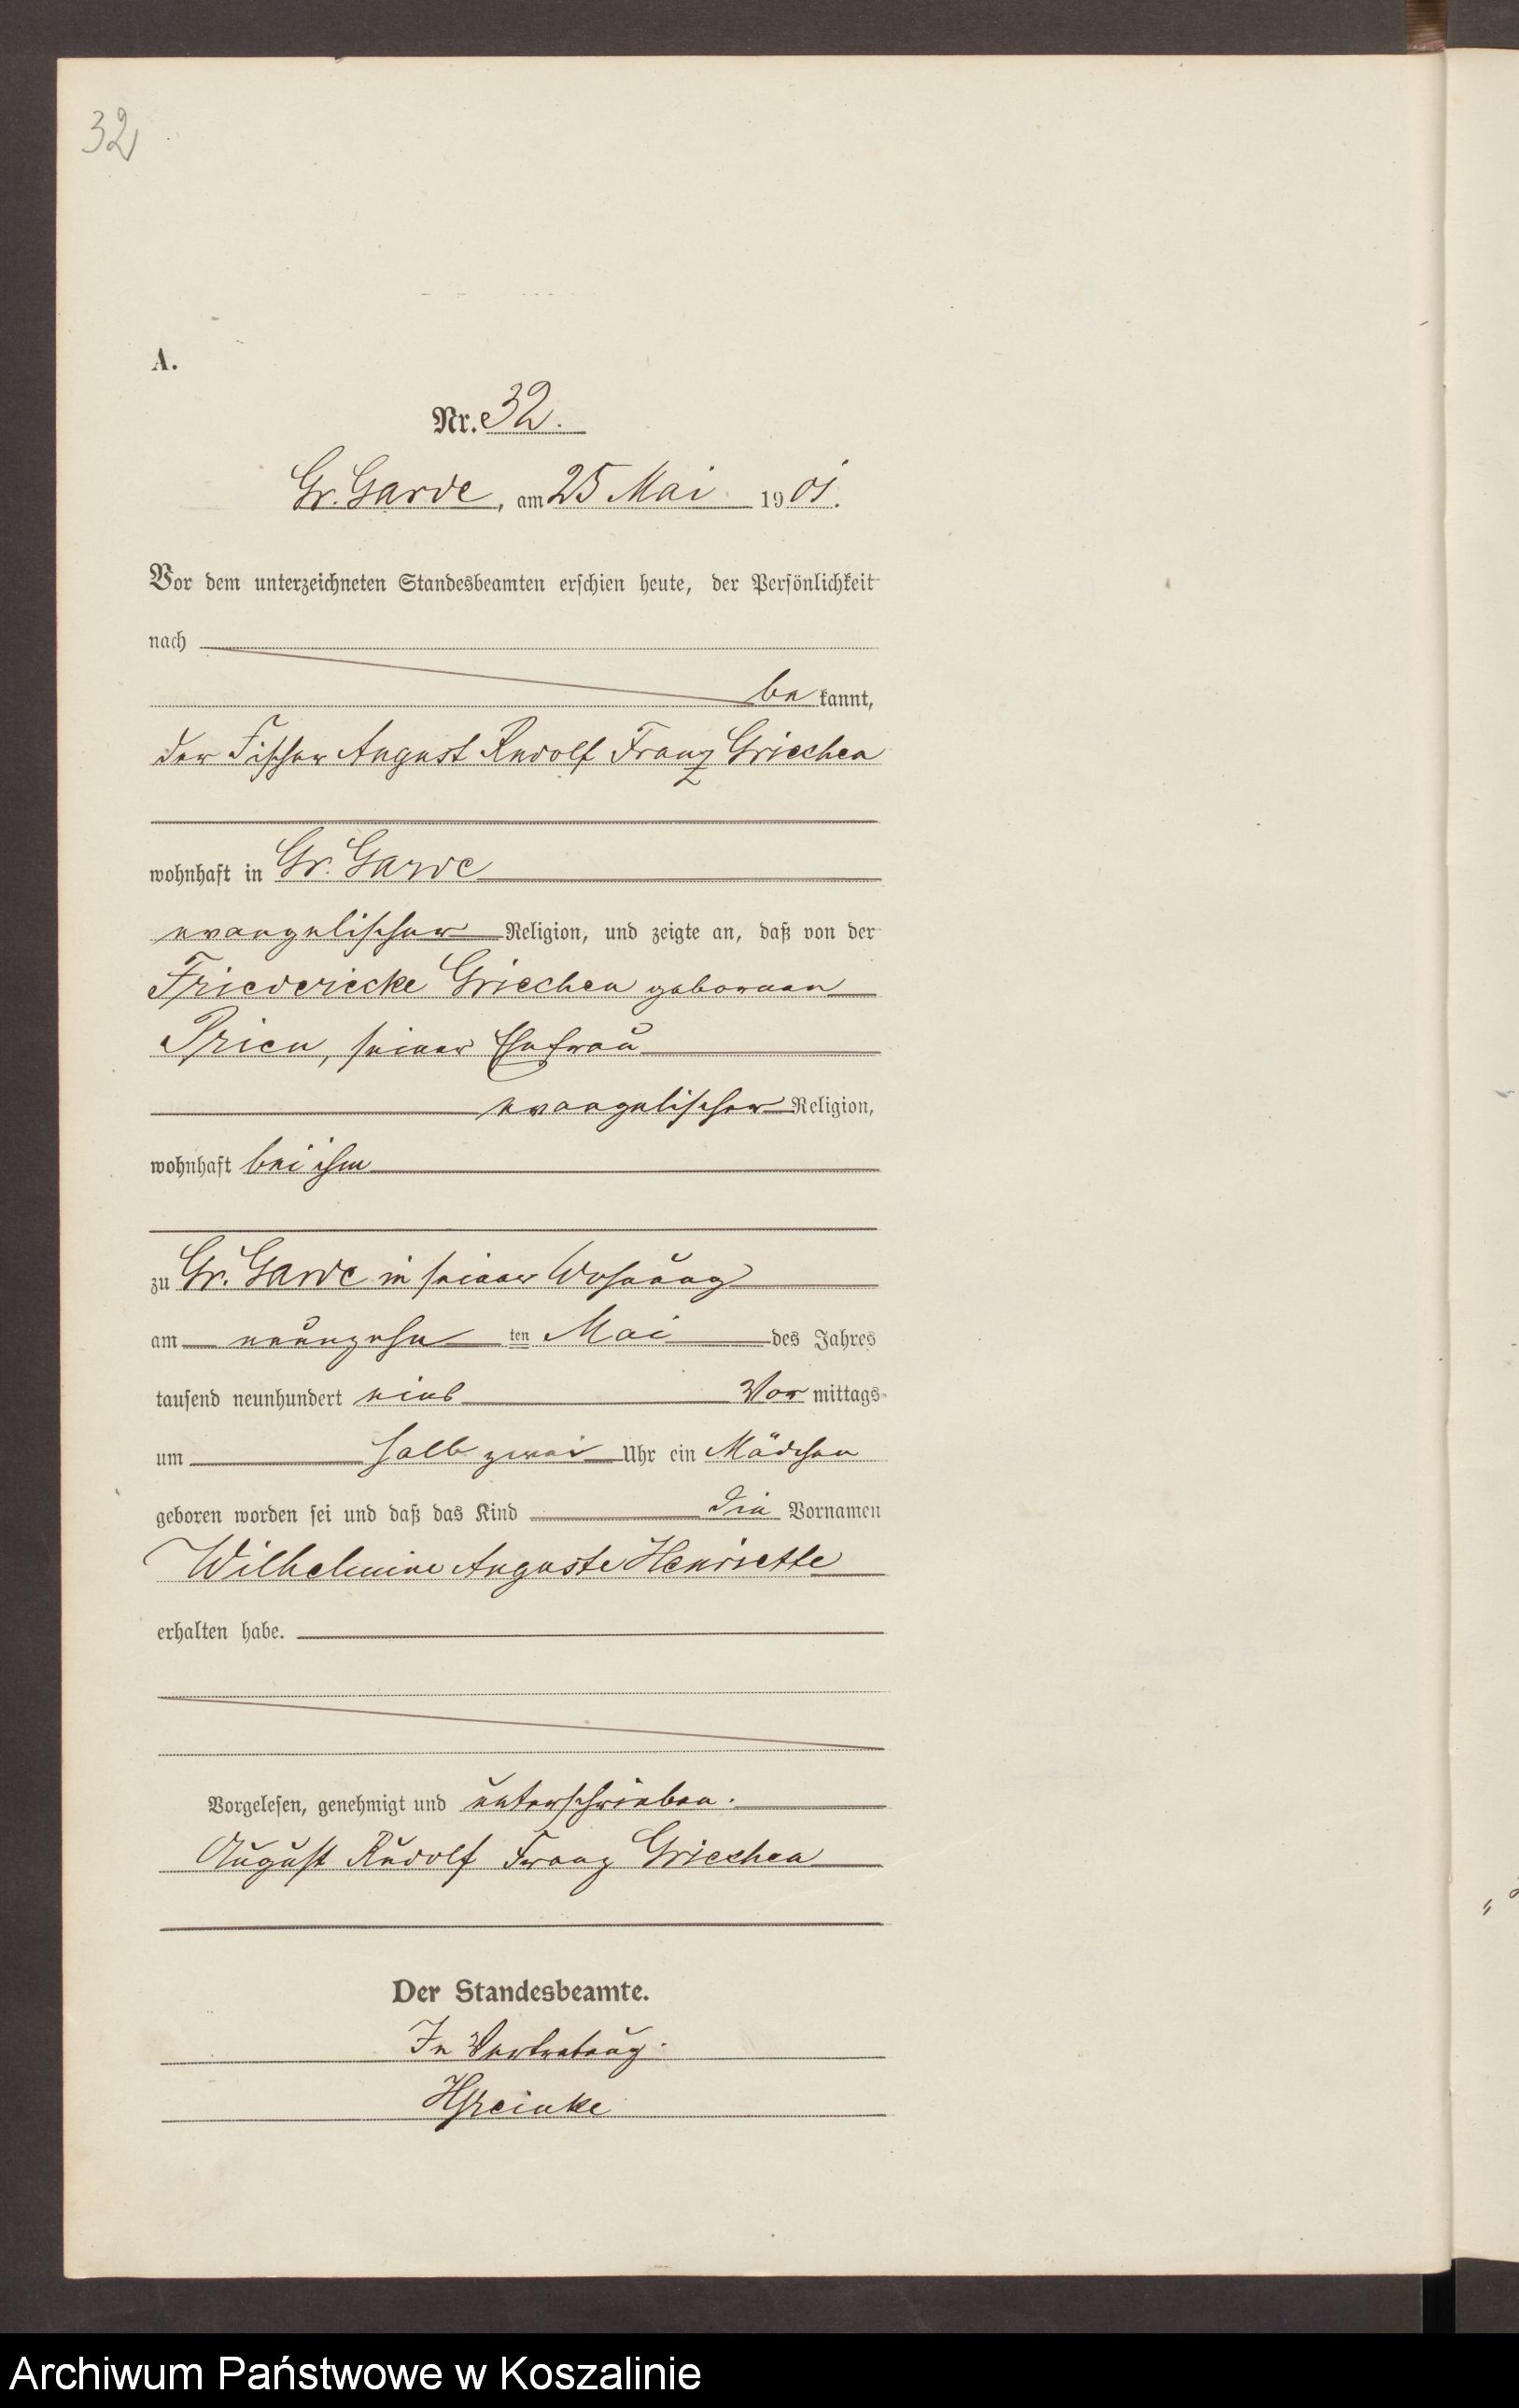 32
A.
Nr. 32.
Gr. Garde, am 25 Mai 1901.
Vor dem unterzeichneten Standesbeamten erschien heute, der Persönlichkeit
nach
be kannt,
der Fischer August Rudolf Franz Griechen
wohnhaft in Gr. Garde
evangelischer Religion, und zeigte an, daß von der
Friedericke Griechen geborenen
Prien, seiner Ehefrau
evangelischer Religion,
wohnhaft bei ihm
zu Gr. Garde in seiner Wohnung
am neunzehn ten Mai des Jahres
tausend neunhundert eins Vor mittags
um halb zwei Uhr ein Mädchen
geboren worden sei und daß das Kind die Vornamen
Wilhelmine Auguste Henriette
erhalten habe.
Vorgelesen, genehmigt und unterschrieben.
August Rudolf Franz Griechen
Der Standesbeamte.
In Vertretung.
Archiwum Państwowe w Koszalinie